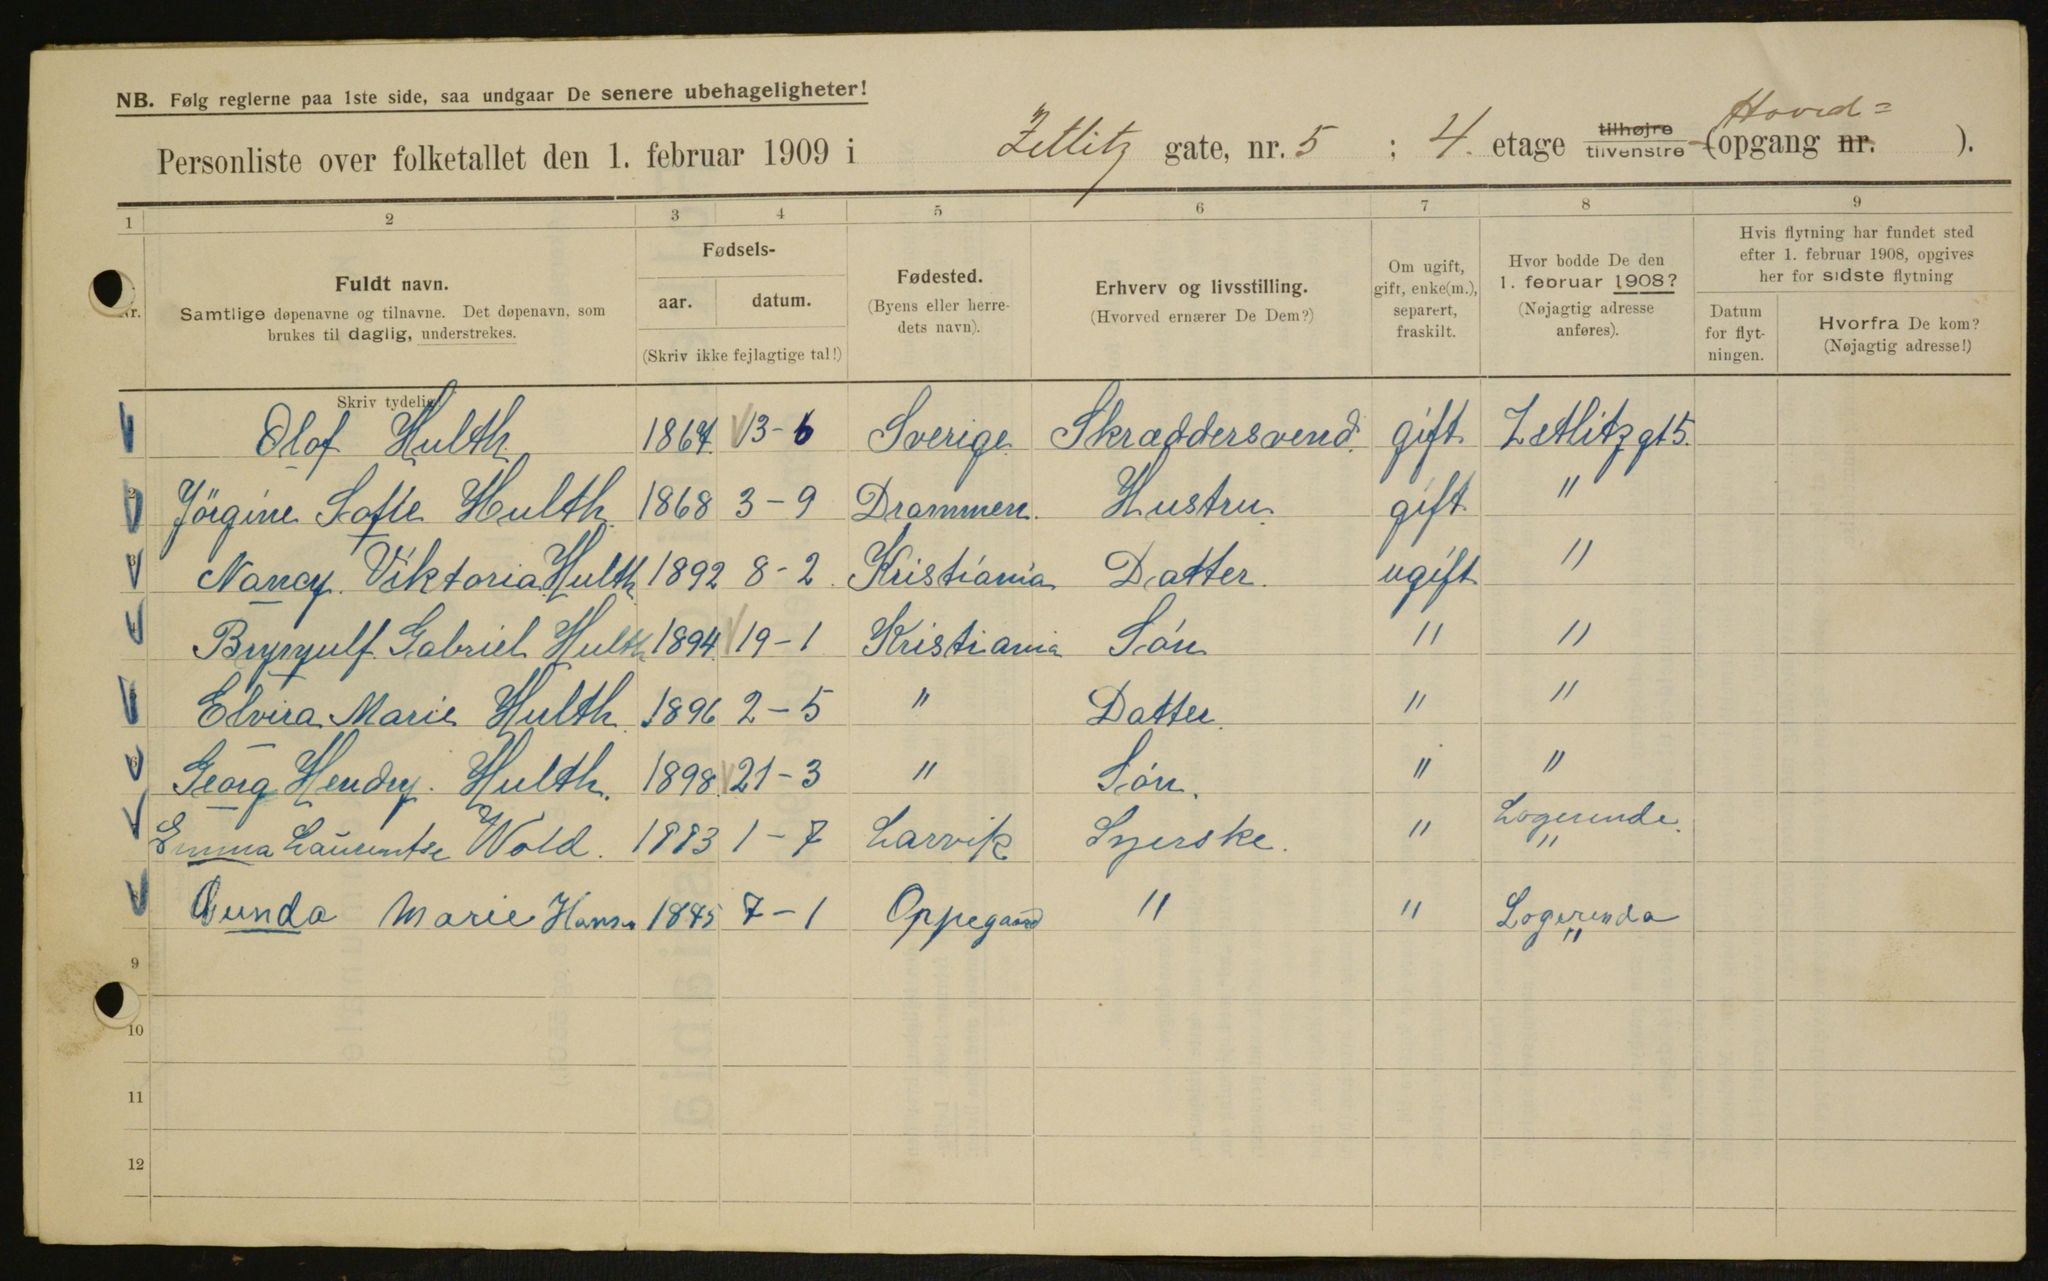 NB. Følg reglerne paa 1ste side, saa undgaar De senere ubehageligheter!
Hoved=
Personliste over folketallet den 1. februar 1909 i Zetlitz gate, nr. 5 ; 4. etage tilhøjre tilvenstre (opgang nr. ).
1 2 3 4 5 6 7 8 9
Nr.
Fuldt navn.
Samtlige døpenavne og tilnavne. Det døpenavn, som
brukes til daglig, understrekes.
Skriv tydelig!
Fødsels-
aar. datum.
(Skriv ikke fejlagtige tal!)
Fødested.
(Byens eller herre-
dets navn).
Erhverv og livsstilling.
(Hvorved ernærer De Dem?)
Om ugift,
gift, enke(m.),
separert,
fraskilt.
Hvor bodde De den
1. februar 1908?
(Nøjagtig adresse
anføres).
Hvis flytning har fundet sted
efter 1. februar 1908, opgives
her for sidste flytning
Datum
for flyt-
ningen.
Hvorfra De kom?
(Nøjagtig adresse!)
Olof Hulth 1864 13-6 Sverige Skræddersvend gift Zetlitz gt 5.
2 Jörgine Sofie Hulth 1868 3-9 Drammen. Hustru gift "
3 Nancy Viktoria Hulth 1892 8-2 Kristiania Datter. ugift "
4 Brynyulf Gabriel Hulth 1894 19-1 Kristiania Sön " "
5 Elvira Marie Hulth 1896 2-5 " Datter. " "
6 Georg Hendry. Hulth. 1898 21-3 " Sön. " "
Emma Laurentse Wold. 1883 1-7 Larvik Syerske. " Logerende. "
8 Gunda Marie Hansen 1885 7-1 Oppegaard " " Logerende "
9
10
11
12